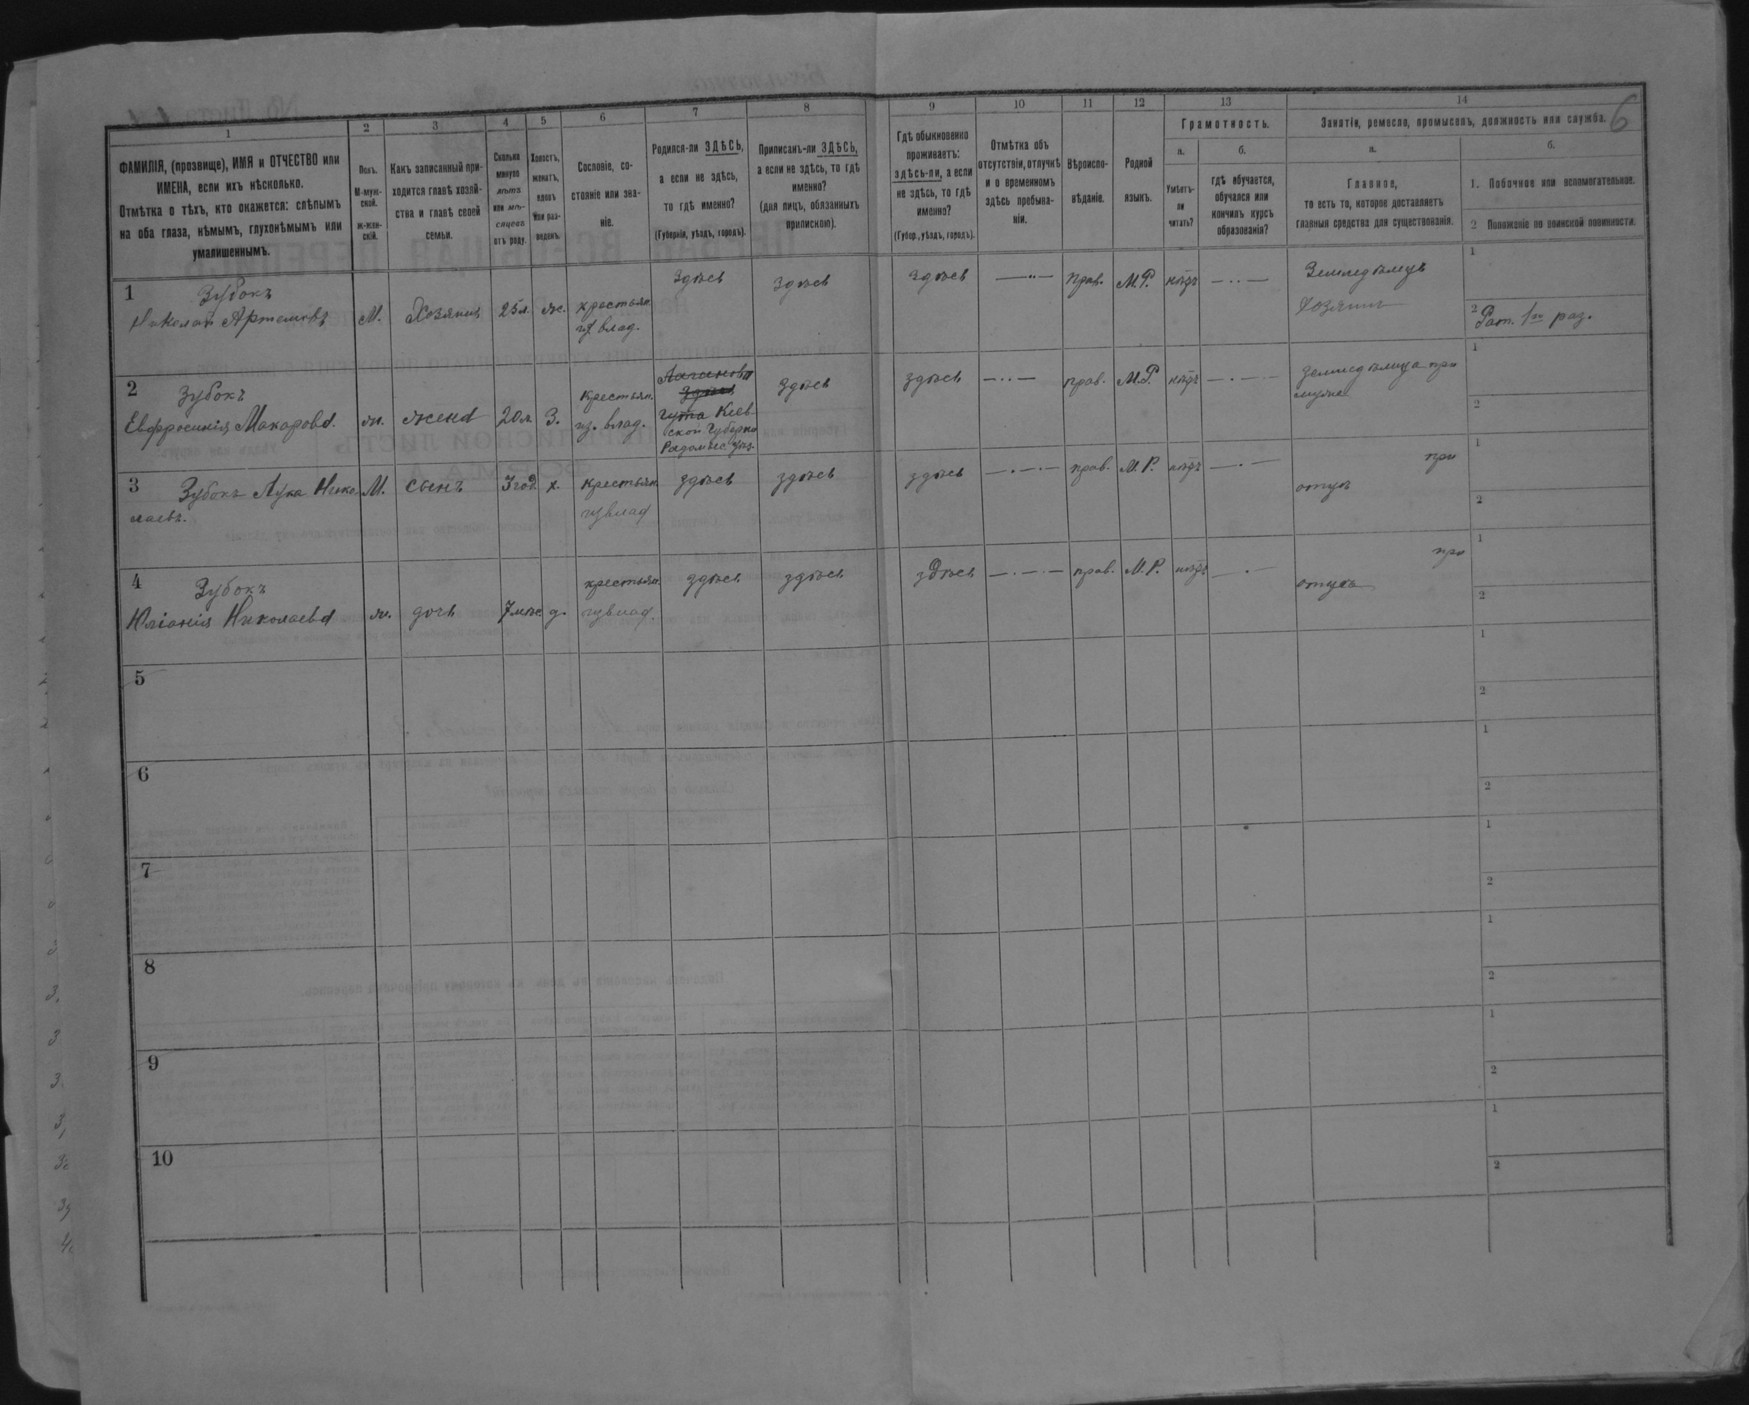 6
1
2
3
4
5
6
7
8
9
10
11
12
13
14
ФАМИЛІЯ, (прозвище), ИМЯ и ОТЧЕСТВО или
ИМЕНА, если ихъ нѣсколько.
Отмѣтка о тѣхъ, кто окажется: слѣпымъ
на оба глаза, нѣмымъ, глухонѣмымъ или
умалишеннымъ.
Полъ.
М-муж-
ской.
ж-жен-
скій.
Какъ записанный при-
ходится главѣ хозяй-
ства и главѣ своей
семьи.
Сколько
минуло
лѣтъ
или мѣ-
сяцевъ
отъ роду.
Холостъ,
женатъ,
вдовъ
или раз-
веденъ.
Сословіе, со-
стояніе или зва-
ніе.
Родился-ли ЗДѢСЬ,
а если не здѣсь,
то гдѣ именно?
(Губернія, уѣздъ, городъ).
Приписанъ-ли ЗДѢСЬ,
а если не здѣсь, то гдѣ
именно?
(для лицъ, обязанныхъ
припискою).
Гдѣ обыкновенно
проживаетъ:
здѣсь-ли, а если
не здѣсь, то гдѣ
именно?
(Губер., уѣздъ, городъ).
Отмѣтка объ
отсутствіи, отлучкѣ
и о временномъ
здѣсь пребыва-
ніи.
Вѣроиспо-
вѣданіе.
Родной
языкъ.
Грамотность.
а.
Умѣетъ-
ли
читать?
б.
гдѣ обучается,
обучался или
кончилъ курсъ
образованія?
Занятія, ремесло, промыселъ, должность или служба.
а.
Главное,
то есть то, которое доставляетъ
главныя средства для существованія.
б.
1. Побочное или вспомогательное.
2 Положеніе по воинской повинности.
1
Зубокъ
Николай Артемовъ
М.
Хозяинъ
25л.
ж.
крестьян.
из влад.
Здѣсь
Здѣсь
здѣсь
Прав.
М.Р.
нѣтъ
Земледѣлецъ
Хозяинъ
1
2
Рат. 1го раз.
2
Зубокъ
Евфросинія Макарова.
ж.
жена
20л.
З.
Крестьян.
из. влад.
Здѣсь
Гута Кіев-
ской Губерніи
Радомыс. уѣз.
здѣсь
здѣсь
прав.
М.Р.
нѣтъ
земледѣлица при
мужѣ
1
2
3
Зубокъ Лука Нико-
лаевъ.
М.
сынъ
3 год.
х.
крестьян.
из влад
здѣсь
здѣсь
здѣсь
прав.
М. Р.
нѣтъ
при
отцѣ
1
2
4
Зубокъ
Юліанія Николаева
ж.
дочь
7 мѣс
д.
крестьян.
из влад.
здѣсь
здѣсь
здѣсь
прав.
М. Р.
нѣтъ
при
отцѣ
1
2
5
1
2
6
1
2
7
1
2
8
1
2
9
1
2
10
1
2